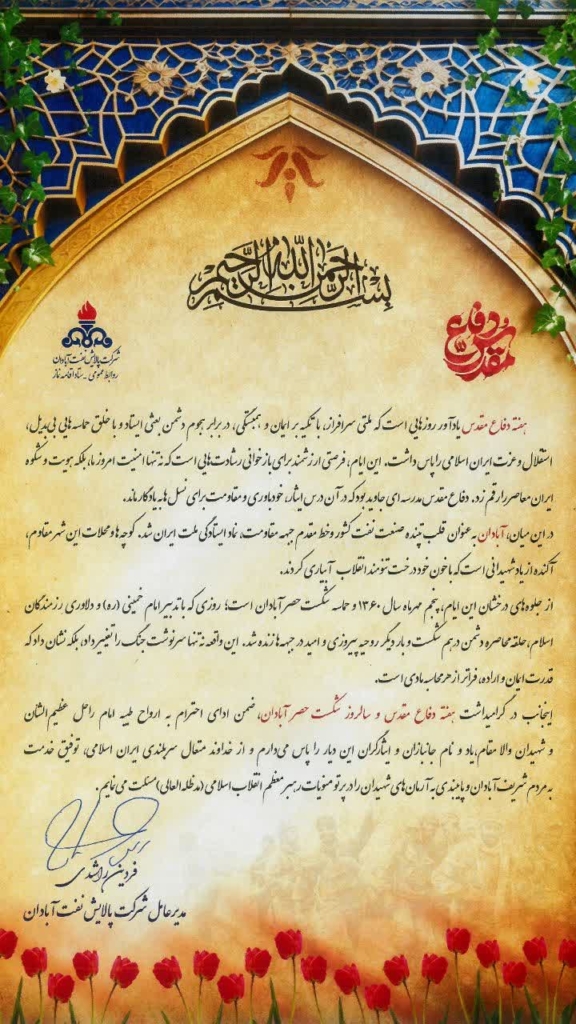 بسم الله الرحمن الرحیم
دفاع مقدس
شرکت پالایش نفت آبادان
روابط عمومی - ستاد اقامه نماز
هفته دفاع مقدس یادآور روزهایی است که ملتی سرافراز، با تکیه بر ایمان و همبستگی، در برابر هجوم دشمن بعثی ایستاد و با خلق حماسه‌هایی بی‌بدیل،
استقلال و عزت ایران اسلامی را پاس داشت. این ایام، فرصتی ارزشمند برای بازخوانی رشادت‌هایی است که نه تنها امنیت امروز ما، بلکه هویت و شکوه
ایران معاصر را رقم زد. دفاع مقدس مدرسه‌ای جاوید بود که در آن درس ایثار، خودباوری و مقاومت برای نسل‌ها به یادگار ماند.
در این میان، آبادان به عنوان قلب تپنده صنعت نفت کشور و خط مقدم جبهه مقاومت، نماد ایستادگی ملت ایران شد. کوچه‌ها و محلات این شهر مقاوم،
آکنده از یاد شهیدانی است که با خون خود درخت تنومند انقلاب آبیاری کردند.
از جلوه‌های درخشان این ایام، پنجم مهرماه سال ۱۳۶۰ و حماسه شکست حصر آبادان است؛ روزی که با تدبیر امام خمینی (ره) و دلاوری رزمندگان
اسلام، حلقه محاصره دشمن در هم شکست و بار دیگر روحیه پیروزی و امید در جبهه‌ها زنده شد. این واقعه نه تنها سرنوشت جنگ را تغییر داد، بلکه نشان داد که
قدرت ایمان و اراده، فراتر از هر محاسبه مادی است.
اینجانب در گرامیداشت هفته دفاع مقدس و سالروز شکست حصر آبادان، ضمن ادای احترام به ارواح طیبه امام راحل عظیم‌الشان
و شهیدان والا مقام، یاد و نام جانبازان و ایثارگران این دیار را پاس می‌دارم و از خداوند متعال سربلندی ایران اسلامی، توفیق خدمت
به مردم شریف آبادان و پایبندی به آرمان‌های شهیدان را در پرتو منویات رهبر معظم انقلاب اسلامی (مدظله‌العالی) مسئلت می‌نمایم.
فردین راشدی
مدیرعامل شرکت پالایش نفت آبادان